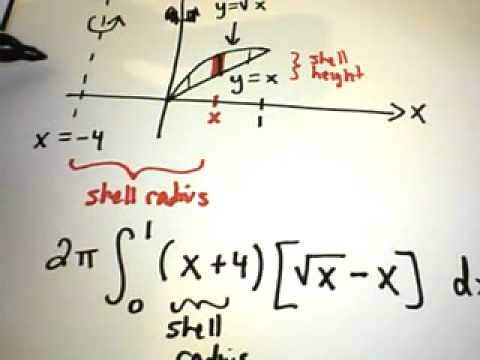 y=√x
} shell
height
y=x
x
1
X
x=-4
shell radius
2π ∫₀¹ (x+4)[√x-x] d
shell
radius